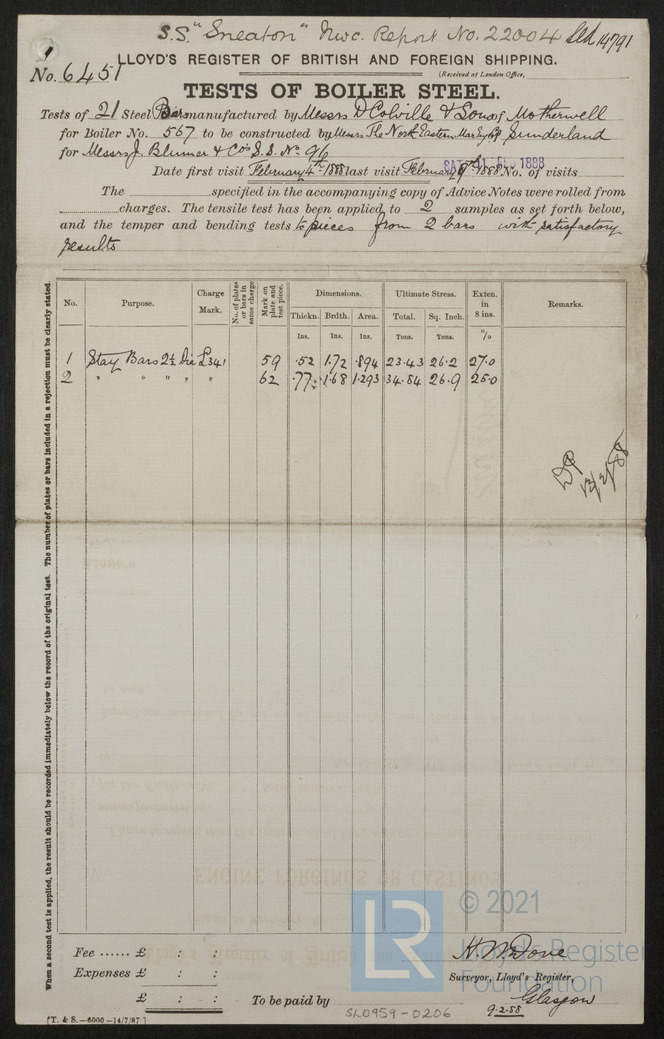 S.S. "Sneaton" Nwc. Report No. 22004 Sld 14791
LLOYD'S REGISTER OF BRITISH AND FOREIGN SHIPPING.
No. 6451
(Received at London Office,
SAT. 11 FEB 1888
TESTS OF BOILER STEEL.
Tests of 21 Steel Bars manufactured by Messrs D Colville & Sons of Motherwell
for Boiler No. 567 to be constructed by Messrs The North Eastern Mar Eng Co Sunderland
for Messrs J. Blumer & Co's S.S. No. 96
Date first visit February 4th 1888 last visit February 9th 1888 No. of visits
The specified in the accompanying copy of Advice Notes were rolled from
charges. The tensile test has been applied to 2 samples as set forth below,
and the temper and bending tests to pieces from 2 bars with satisfactory
results
No. Purpose. Charge Mark. No. of plates or bars in same charge Mark on plate and test piece. Dimensions. Ultimate Stress. Exten. in 8 ins. Remarks.
Thickn. Brdth. Area. Total. Sq. Inch.
Ins. Ins. Ins. Tons. Tons. %
1 Stay Bars 2½ Dia L341 59 .52 1.72 .894 23.43 26.2 27.0
2 " " " " " 62 .77 1.68 1.293 34.84 26.9 25.0
12/2/88
When a second test is applied, the result should be recorded immediately below the record of the original test. The number of plates or bars included in a rejection must be clearly stated.
Fee ...... £ : :
Expenses £ : :
£ : :
To be paid by
Surveyor, Lloyd's Register,
Glasgow
9.2.88
SL0959-0206
[T. & S.—6000—14/7/87.]
LR
© 2021
Lloyd's Register
Foundation